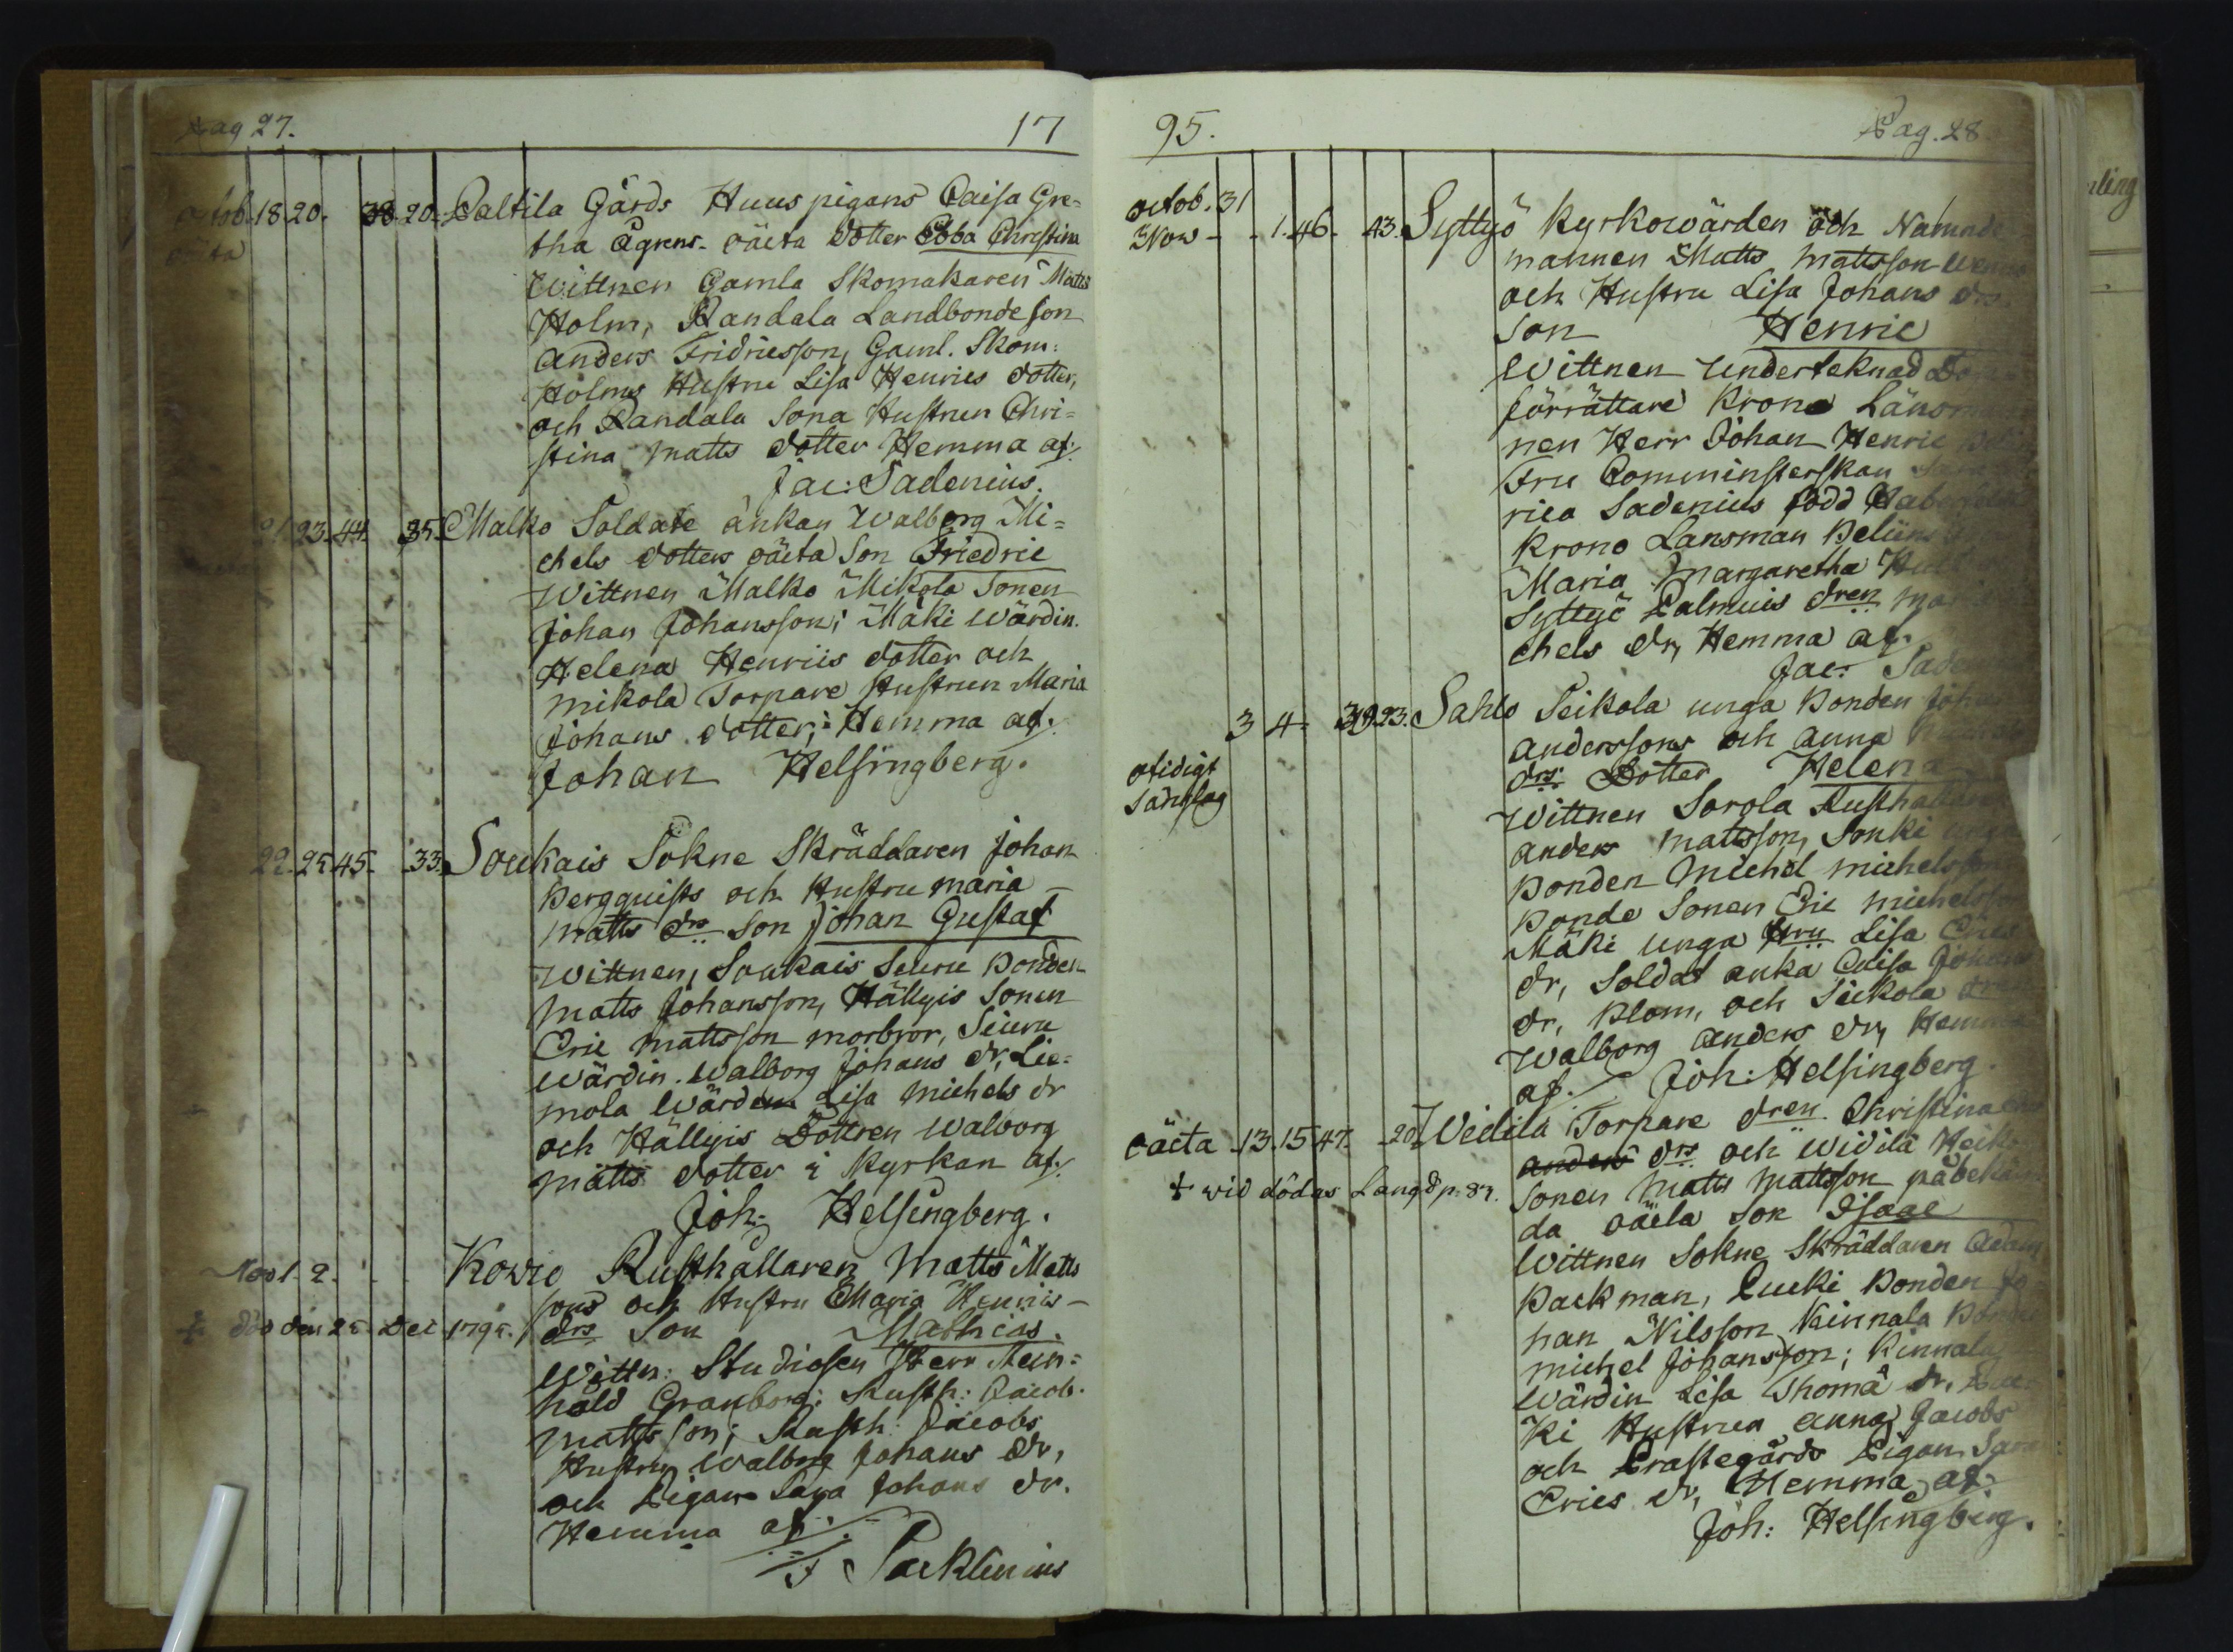 Pag 27. 17
octob. 18. 20. 38. 20. Paltila Gårds Huus pigans Caisa Gre=
oäcta tha Ågrens oäcta dotter Ebba Christina
Wittnen Gamla Skomakaren Matts
Holm, Randala Landbonde son
Anders Fridricsson, Gaml. Skom:
Holms Hustru Lisa Henrics dotter,
och Randala Sona Hustrun Chri=
stina Matts dotter Hemma af.
Jac: Sadenius.
21. 23. 44. 35. Malko Soldate änkan Walborg Mi=
chels dotters oäcta Son Friedric
Wittnen Malko Mikola Sonen
Johan Johansson; Mäki Wärdin.
Helena Henriis dotter och
Mikola Torpare Hustrun Maria
Johans dotter; Hemma af.
Johan Helsingberg.
22. 25 45. 33. Soukais Sokne Skräddaren Johan
Bergquists och Hustru Maria
Matts drs Son Johan Gustaf
Wittnen, Soukais Seuru Bonden
Matts Johansson, Hällyis Sonen
Eric Mattsson morbror, Seuru
Wärdin. Walborg Johans dr, Lie=
mola Wärden Lisa Michels dr
och Hällyis Dottren Walborg
Matts dotter i Kyrkan af.
Joh: Helsingberg.
Nov 1. 2. Kowio Rusthållaren Matts Matts
sons och Hustru Maria Henrics
+ död den 25 Dec 1795. drs Son Mathias.
Wittn: Studiosen Herr Mein=
hold Granborg; Rusth: Jacob.
Mattsson; Rusth: Jacobs
Hustru Walborg Johans Dr,
och Pigan Sara Johans dr.
Hemma af.
Packlenius
95. Pag. 28
octob. 31
Nov - - 1. 46. 43. Syttyö Kyrkowärden och Nämnde
mannen Matts Mattsson
och Hustru Lisa Johans drs
Son Henric
Wittnen Underteknad
förrättare Krono Länsm
nen Herr Johan Henric
Fru Comminsterskan
rica Sadenius född
Krono Lansman
Maria Margaretha
Syttyö Palmuis dren
chels dr, Hemma af.
Jac: Sade
3 4. 3923. Sahlo Seikola unga Bonden Johan
Anderssons och Anna
drs Dotter Helena
ofidigt
sänglag
Wittnen Sorola Rusthållare
Anders Mattsson, Sonki unga
Bonden Michel Michelsson
Bonde Sonen Eric Michelsson
Mäki unga Hru Lisa Erics
dr, Soldat änka Caisa Johans
dr, Blom, och Seikola dren
Walborg Anders dr, Hemma
af. Joh: Helsingberg.
oäcta 13. 15 47. 20 Widila Torpare dren Christina
Anders drs och Widila Heik
+ vid dödas Langd p. 87. Sonen Matts Mattsson påbekän
da oäcta Son Isaac
Wittnen Sokne Skräddaren Adam
Backman, Lucki Bonden Jo
han Nilsson Kinnala Bonden
Michel Johansson; Kinnala
Wärdin Lisa Thoma dr, Luc
ki Hustrun Anna Jacobs
och Prästegårds Pigan Sara
Erics dr, Hemma af.
Joh: Helsingberg.